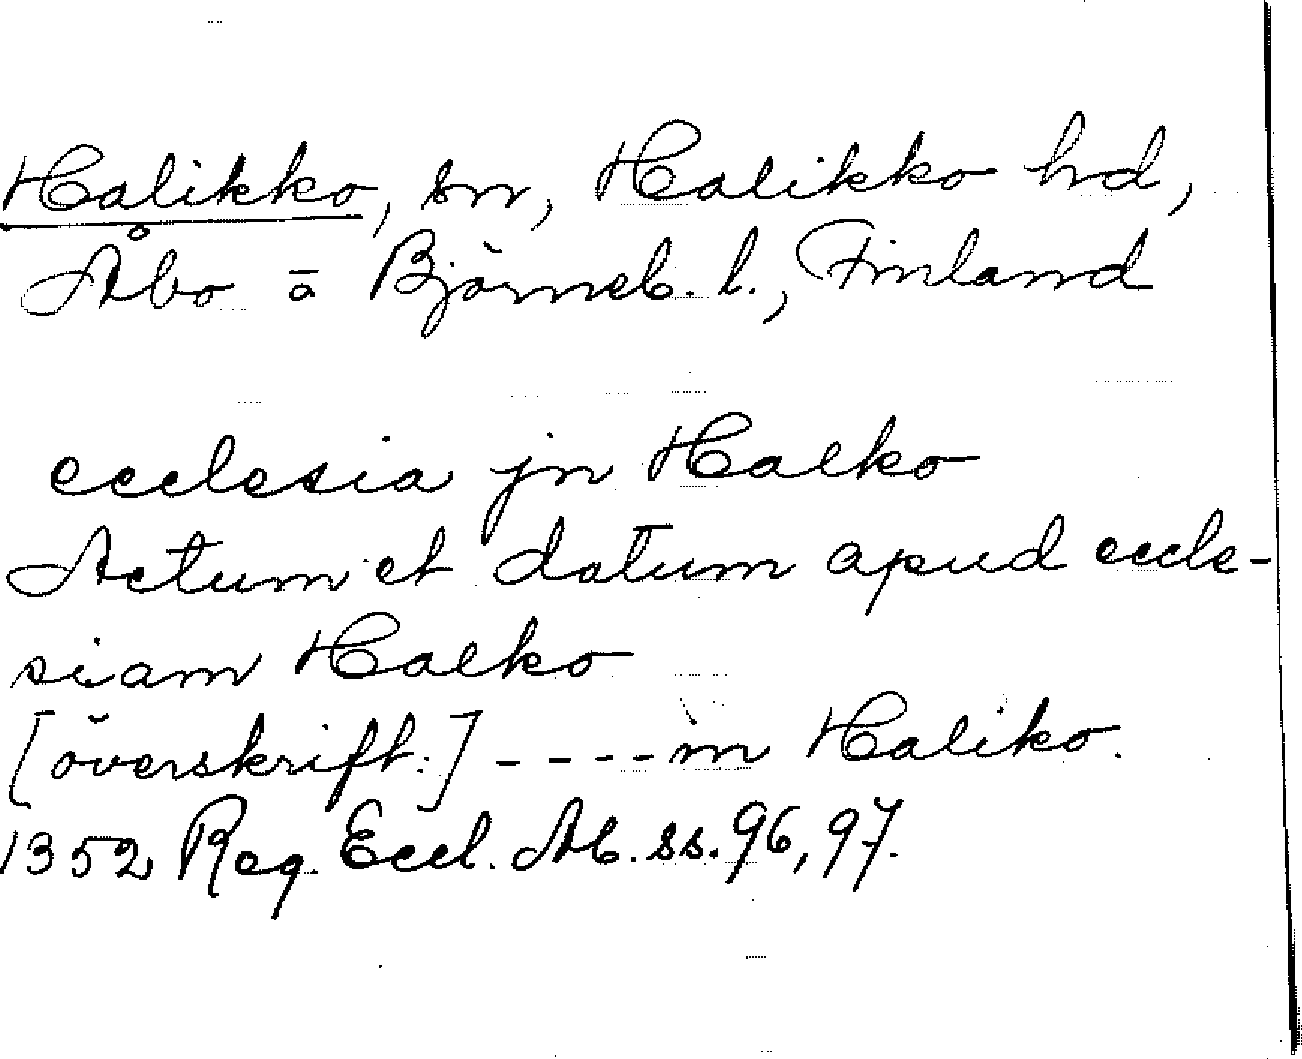 Halikko, sn, Halikko hd,
Åbo o. Björneb. l., Finland
ecclesia jn Halko
Actum et datum apud eccle-
siam Halko
[överskrift:] ---- in Haliko.
1352 Reg. Eccl. Ab. ss. 96, 97.